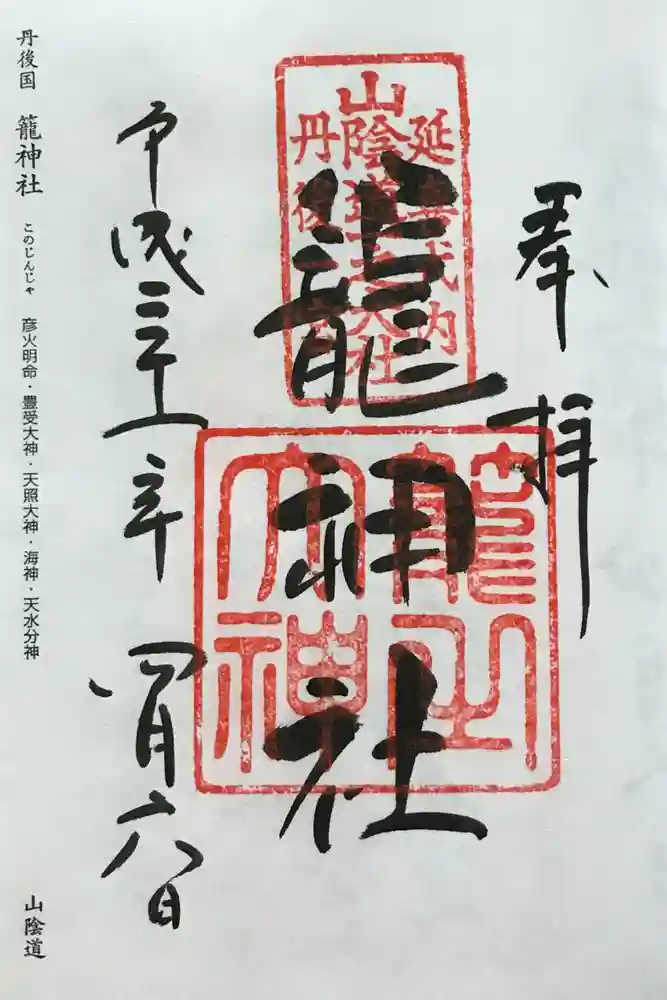 奉拝
延喜式内
山陰道一之大社
丹後
籠神社
籠之大神
平成三十一年
四月六日
丹後国 籠神社 このじんじゃ 彦火明命・豊受大神・天照大神・海神・天水分神
山陰道